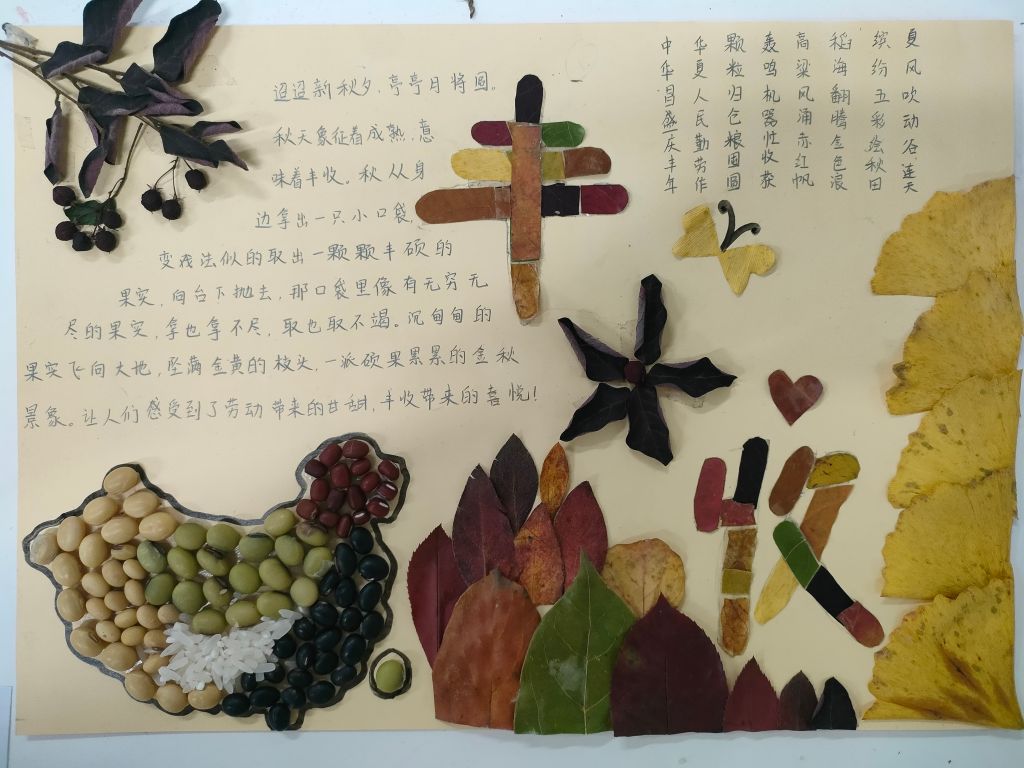 迢迢新秋夕，亭亭月将圆。
秋天象征着成熟，意
味着丰收。秋从身
边拿出一只小口袋，
变戏法似的取出一颗颗丰硕的
果实，向台下抛去，那口袋里像有无穷无
尽的果实，拿也拿不尽，取也取不竭。沉甸甸的
果实飞向大地，坠满金黄的枝头，一派硕果累累的金秋
景象。让人们感受到了劳动带来的甘甜，丰收带来的喜悦！
丰
收
夏风吹动谷莲天
缤纷五彩绘秋田
稻海翻腾金色浪
高粱风涌赤红帆
轰鸣机器忙收获
颗粒归仓粮囤圆
华夏人民勤劳作
中华昌盛庆丰年